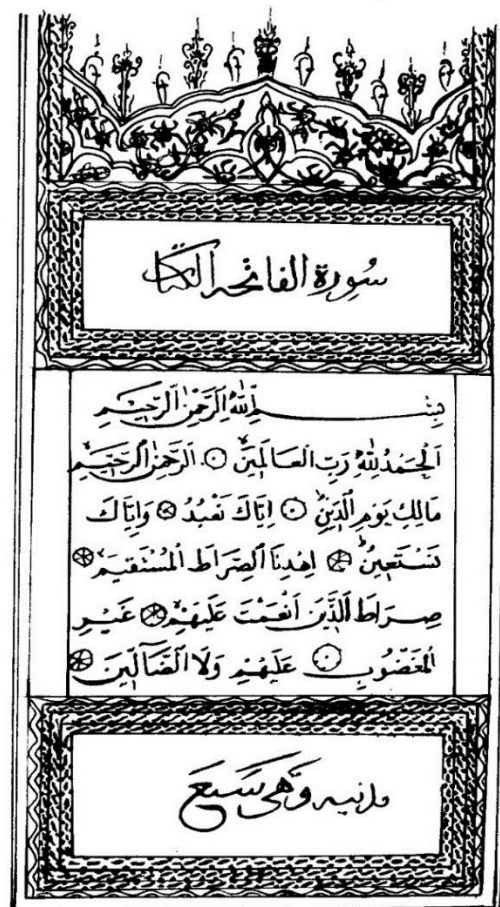 سُورة الفاتحه الكتاب
بِسْمِ اللّٰهِ الرَّحْمٰنِ الرَّحِيْمِ
اَلْحَمْدُ لِلّٰهِ رَبِّ الْعَالَمِيْنَ ۝ اَلرَّحْمٰنِ الرَّحِيْمِ
مَالِكِ يَوْمِ الدِّيْنِ ۝ اِيَّاكَ نَعْبُدُ ۝ وَاِيَّاكَ
نَسْتَعِيْنُ ۝ اِهْدِنَا الصِّرَاطَ الْمُسْتَقِيْمَ ۝
صِرَاطَ الَّذِيْنَ اَنْعَمْتَ عَلَيْهِمْ ۝ غَيْرِ
الْمَغْضُوْبِ ۝ عَلَيْهِمْ وَلَا الضَّآلِّيْنَ ۝
مدنيه وَهى سَبعَ